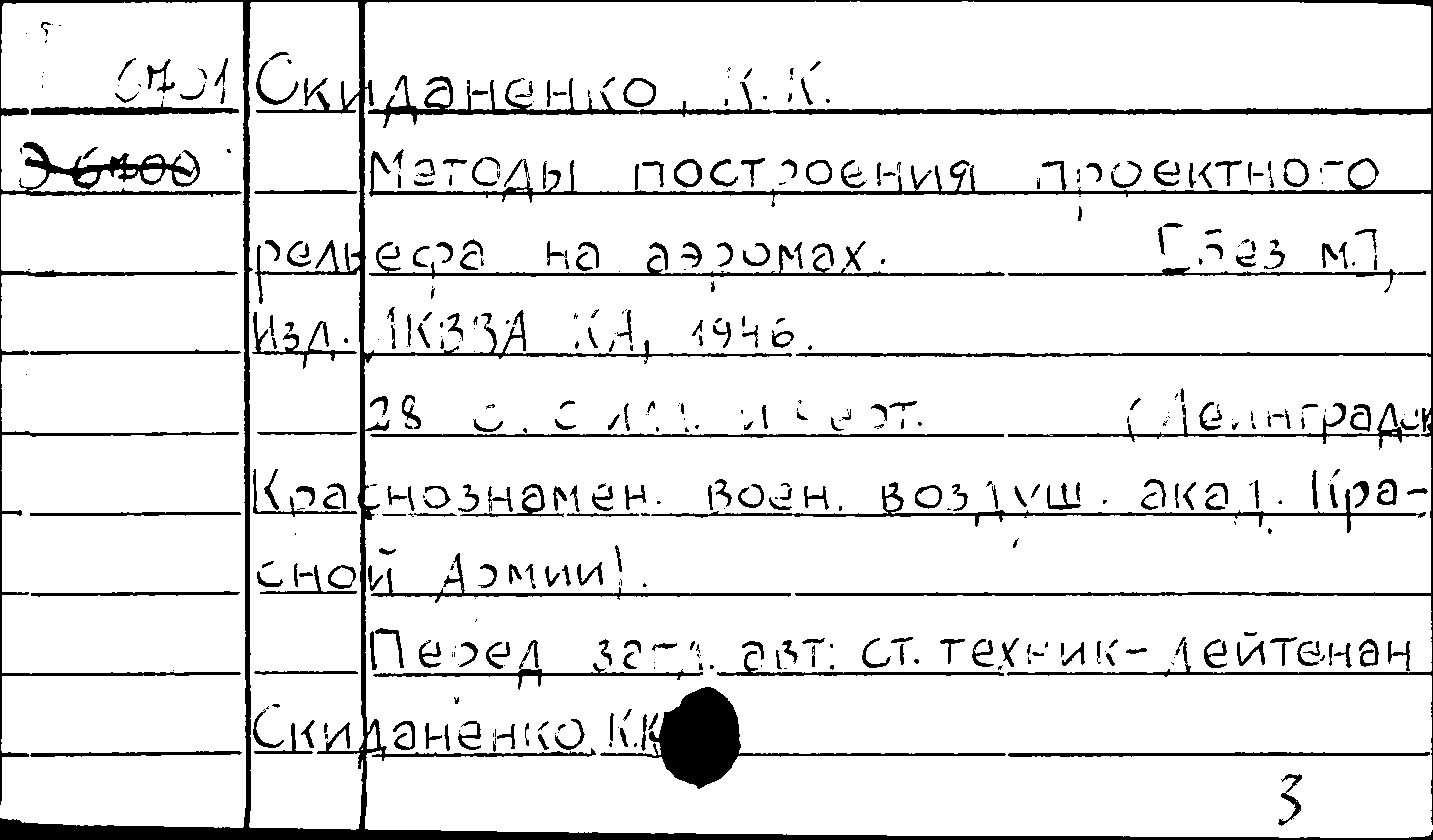 6701 Скиданенко, К.К.
Э 6700 Методы построения проектного
рельефа на аэромах. [Без м.],
Изд. ЛКВВА КА, 1946.
28 с. с илл. и черт. (Ленинградск
Краснознамен. воен. воздуш. акад. Кра-
сной Армии).
Перед загл. авт: ст. техник-лейтенан
Скиданенко К.К
3